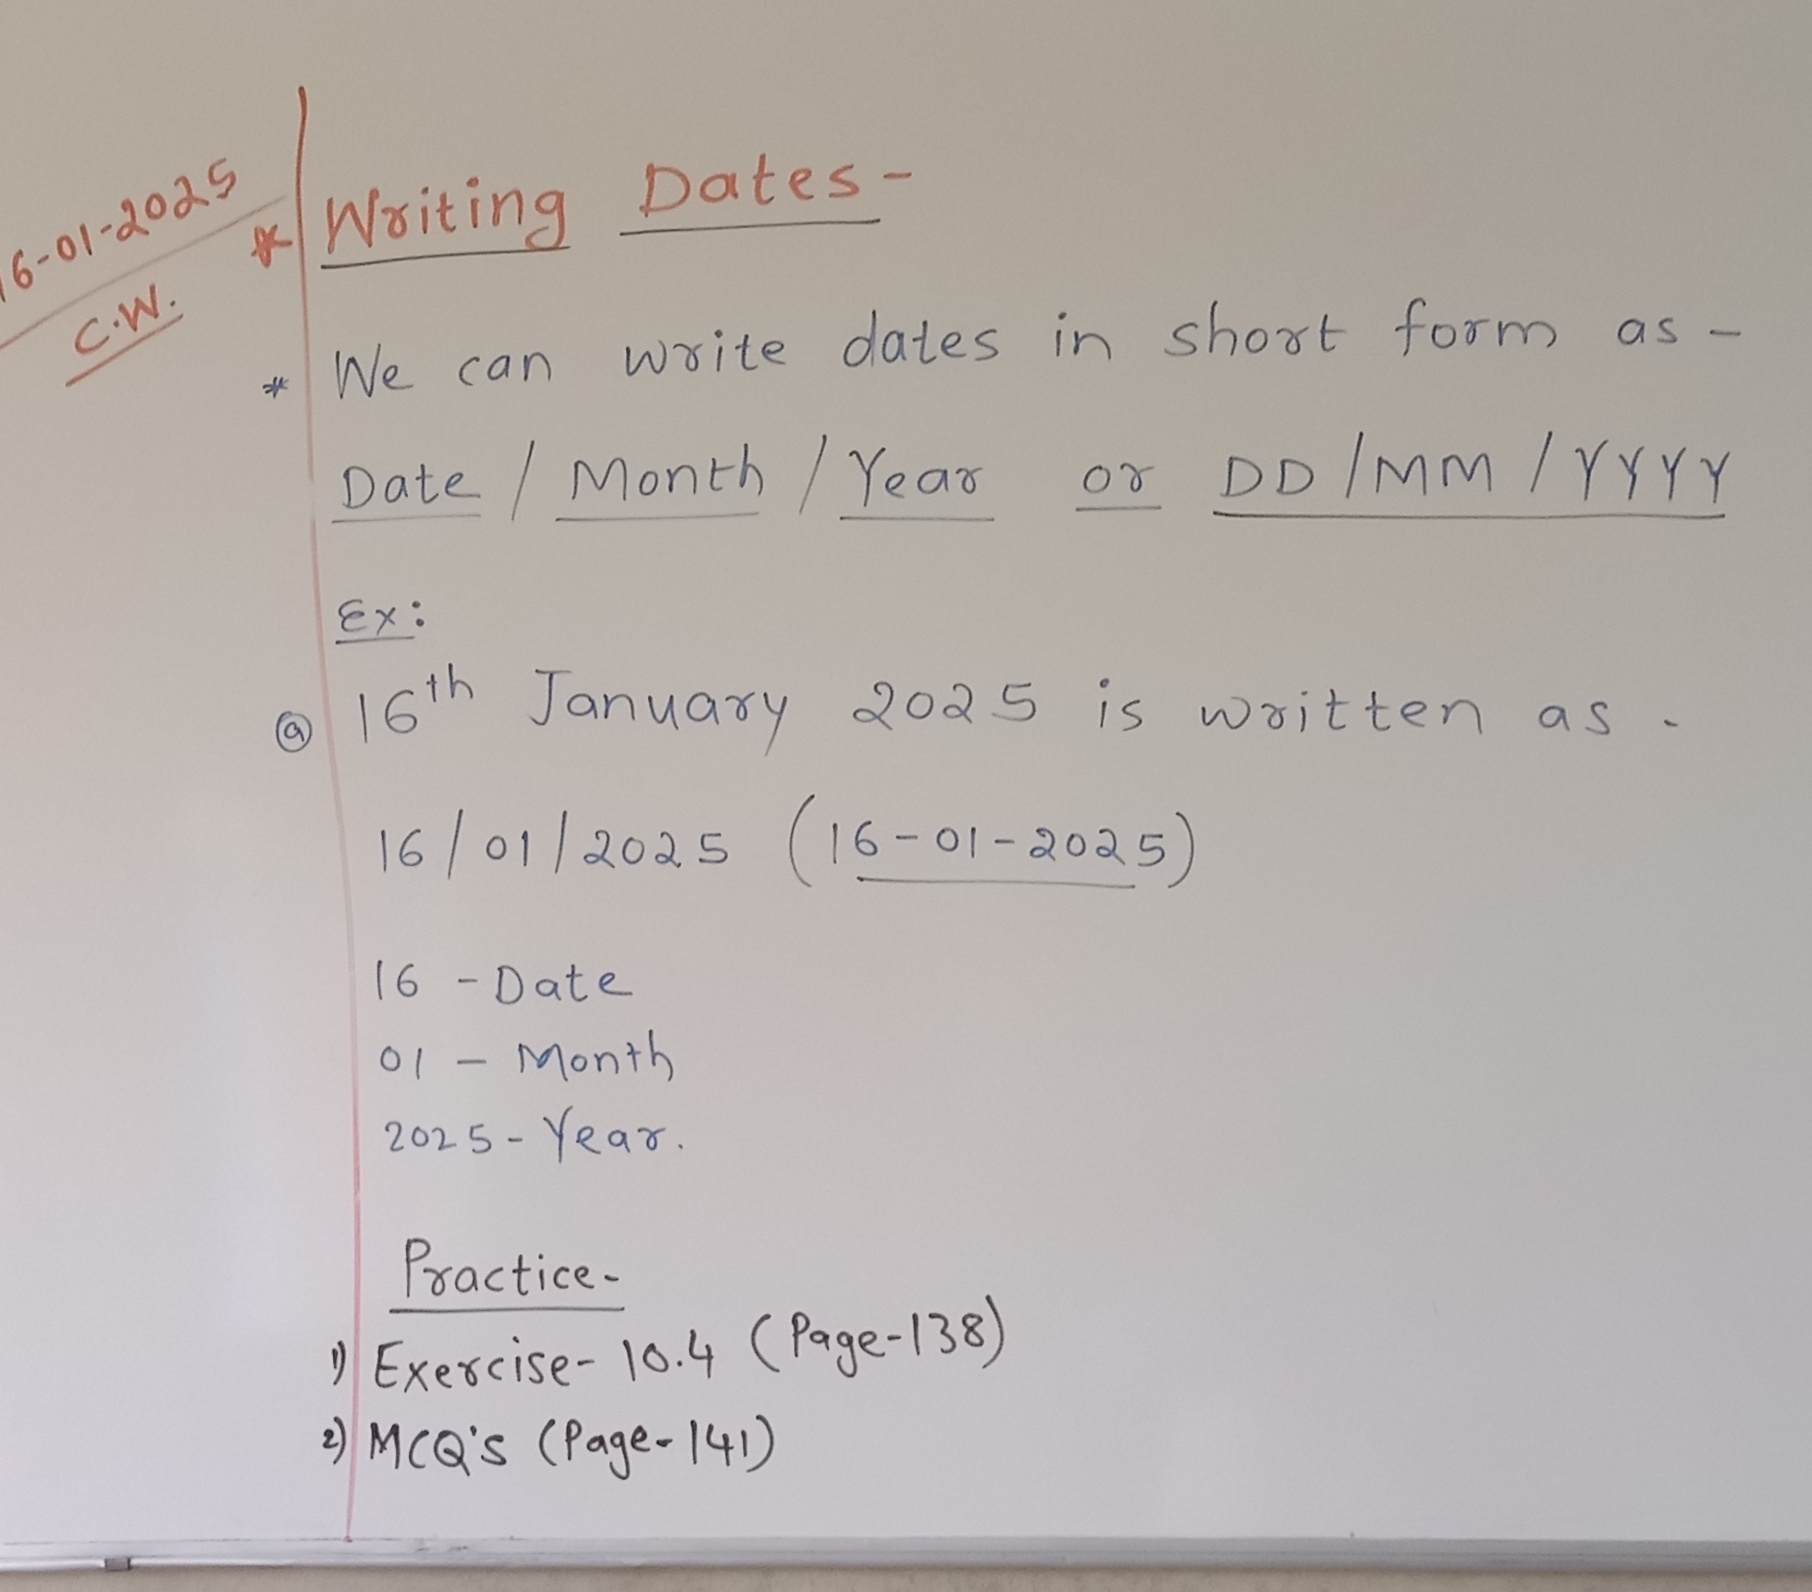 16-01-2025
C.W.
* Writing Dates-
* We can write dates in short form as -
Date / Month / Year or DD/MM/YYYY
Ex:
ⓐ 16th January 2025 is written as -
16/01/2025 (16-01-2025)
16 - Date
01 - Month
2025 - Year.
Practice-
1) Exercise- 10.4 (Page-138)
2) MCQ's (Page-141)